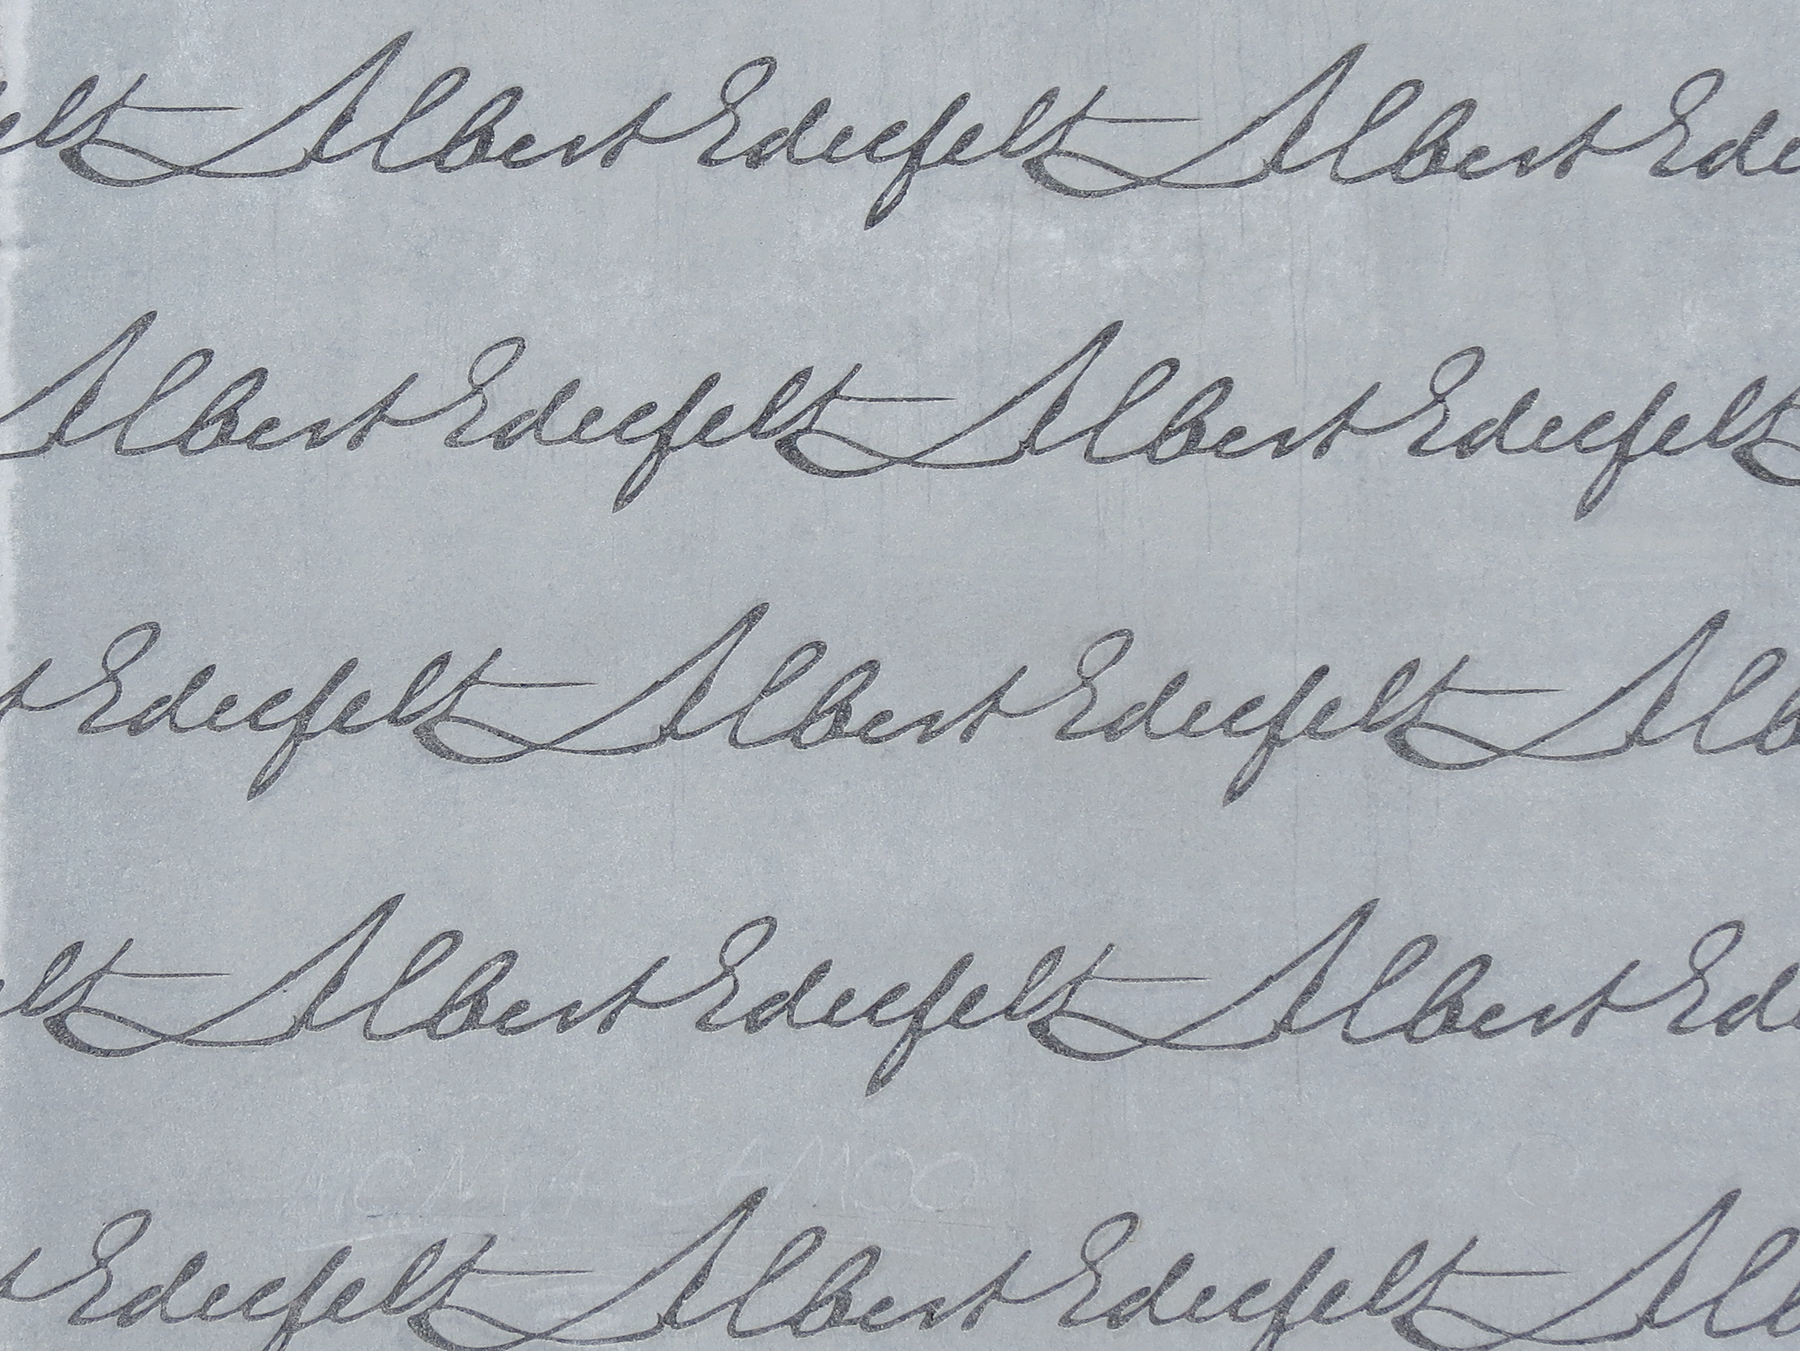 elt Albert Edelfelt Albert Ede
Albert Edelfelt Albert Edelfelt
t Edelfelt Albert Edelfelt Alb
elt Albert Edelfelt Albert Ede
t Edelfelt Albert Edelfelt Alb